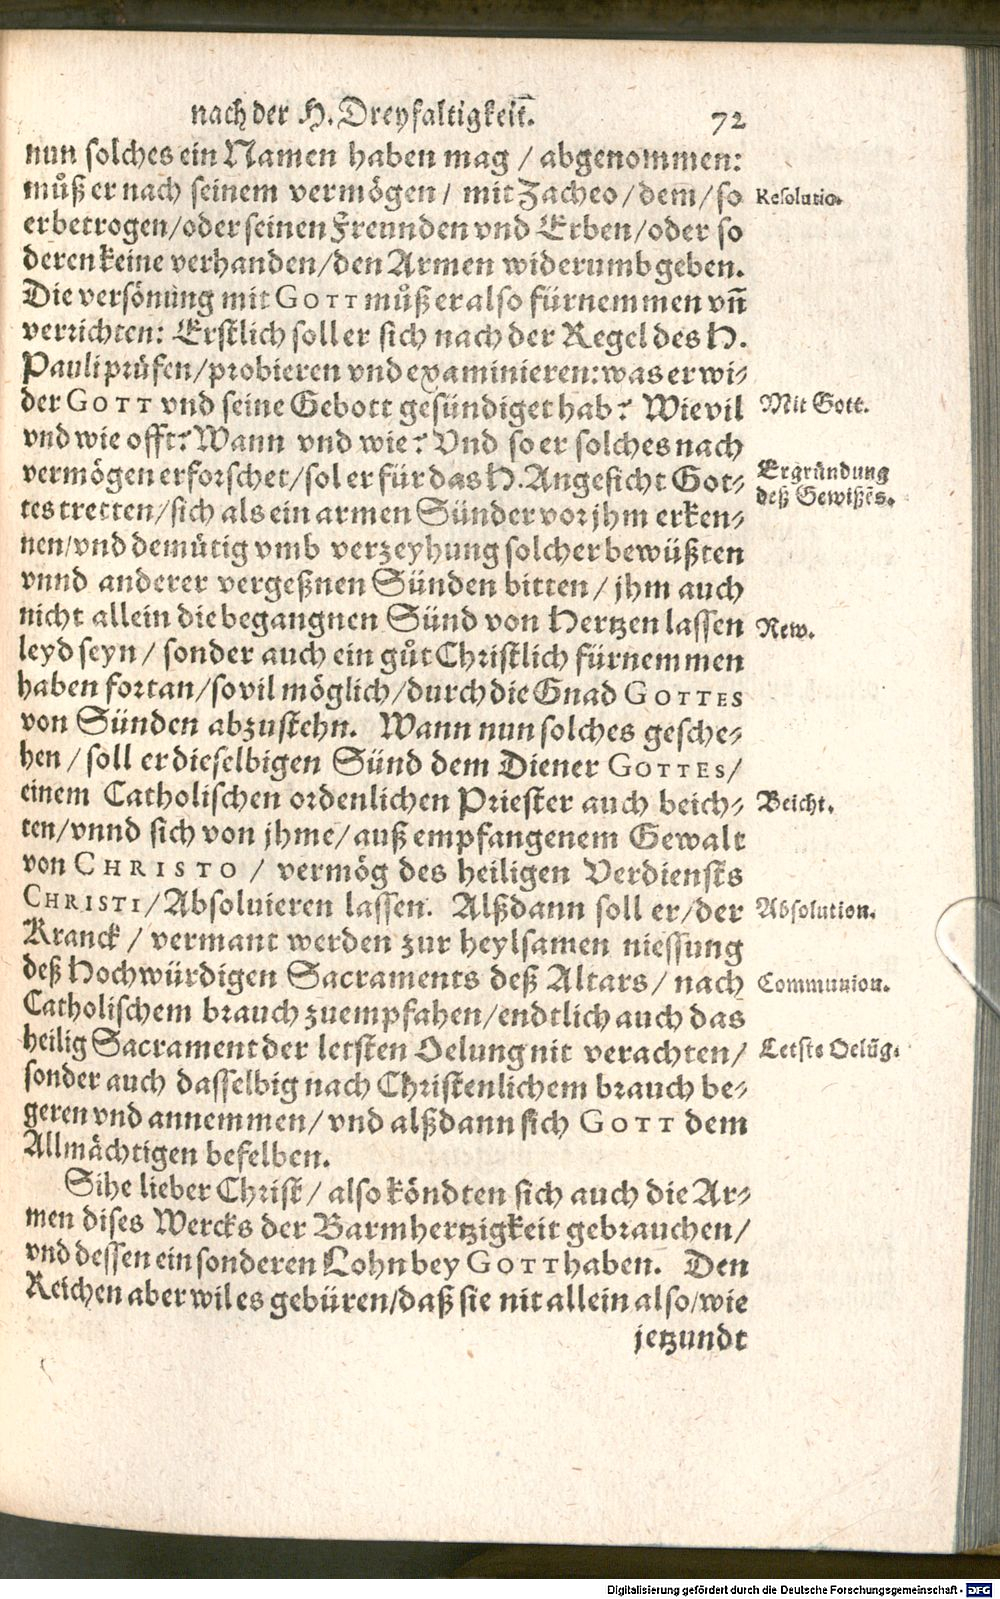 nach der H. Dreyfaltigkeit. 72
nun solches ein Namen haben mag / abgenommen:
můß er nach seinem vermögen / mit Zacheo / dem / so
Resolutio.
er betrogen / oder seinen Freunden vnd Erben / oder so
deren keine verhanden / den Armen widerumb geben.
Die versönung mit GOTT můß er also fürnemmen vñ
verrichten: Erstlich soll er sich nach der Regel des H.
Pauli prüfen / probieren vnd examinieren: was er wi-
der GOTT vnd seine Gebott gesündiget hab? Wie vil
Mit Gott.
vnd wie offt? Wann vnd wie? Vnd so er solches nach
vermögen erforschet / sol er für das H. Angesicht Got-
Ergründung
deß Gewißẽs.
tes tretten / sich als ein armen Sünder vor jhm erken-
nen / vnd demütig vmb verzeyhung solcher bewüßten
vnnd anderer vergeßnen Sünden bitten / jhm auch
nicht allein die begangnen Sünd von Hertzen lassen
Rew.
leyd seyn / sonder auch ein gůt Christlich fürnemmen
haben fortan / so vil möglich / durch die Gnad GOTTES
von Sünden abzustehn. Wann nun solches gesche-
hen / soll er dieselbigen Sünd dem Diener GOTTES /
einem Catholischen ordenlichen Priester auch beich-
Beicht.
ten / vnnd sich von jhme / auß empfangenem Gewalt
von CHRISTO / vermög des heiligen Verdiensts
CHRISTI / Absoluieren lassen. Alßdann soll er / der
Absolution.
Kranck / vermant werden zur heylsamen niessung
deß Hochwürdigen Sacraments deß Altars / nach
Communion.
Catholischem brauch zuempfahen / endtlich auch das
heilig Sacrament der letsten Oelung nit verachten /
Letste Oelũg.
sonder auch dasselbig nach Christenlichem brauch be-
geren vnd annemmen / vnd alßdann sich GOTT dem
Allmächtigen befelben.
Sihe lieber Christ / also köndten sich auch die Ar-
men dises Wercks der Barmhertzigkeit gebrauchen /
vnd dessen ein sonderen Lohn bey GOTT haben. Den
Reichen aber wil es gebüren / daß sie nit allein also / wie
jetzundt
Digitalisierung gefördert durch die Deutsche Forschungsgemeinschaft - DFG